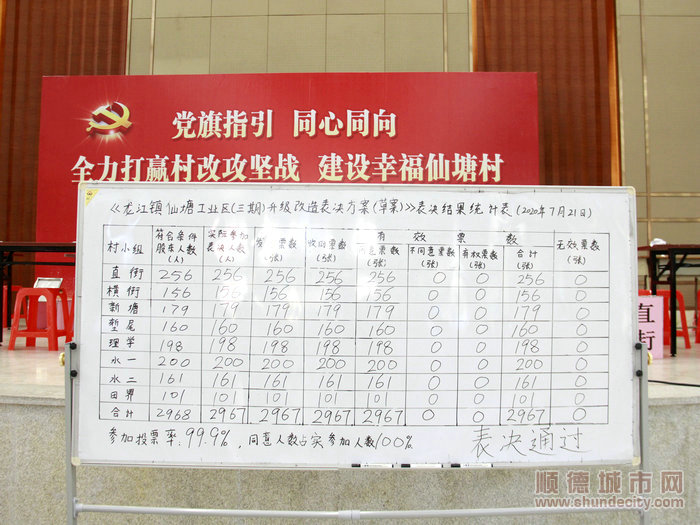 党旗指引 同心同向
全力打赢村改攻坚战 建设幸福仙塘村
《龙江镇仙塘工业区(三期)升级改造表决方案(草案)》表决结果统计表(2020年7月21日)
村小组 符合条件股东人数(人) 实际参加表决人数(人) 发票数(张) 收回票数(张) 有效票数 无效票数(张)
同意票数(张) 不同意票数(张) 弃权票数(张) 合计(张)
直街 256 256 256 256 256 0 0 256 0
横街 156 156 156 156 156 0 0 156 0
新塘 179 179 179 179 179 0 0 179 0
尾 160 160 160 160 160 0 0 160 0
理学 198 198 198 198 198 0 0 198 0
水一 200 200 200 200 200 0 0 200 0
水二 161 161 161 161 161 0 0 161 0
田界 101 101 101 101 101 0 0 101 0
合计 2968 2967 2967 2967 2967 0 0 2967 0
参加投票率:99.9%,同意人数占实参加人数100%
表决通过
直街
顺德城市网
www.shundecity.com